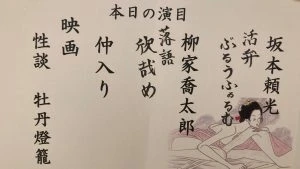 本日の演目
坂本頼光
活弁
ぶるうふゐるむ
柳家喬太郎
落語
欣哉め
仲入り
映画
性談 牡丹燈籠